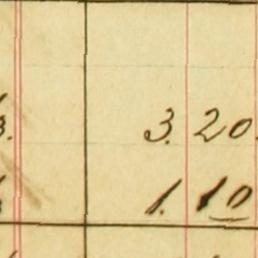 3. 20.
1. 10